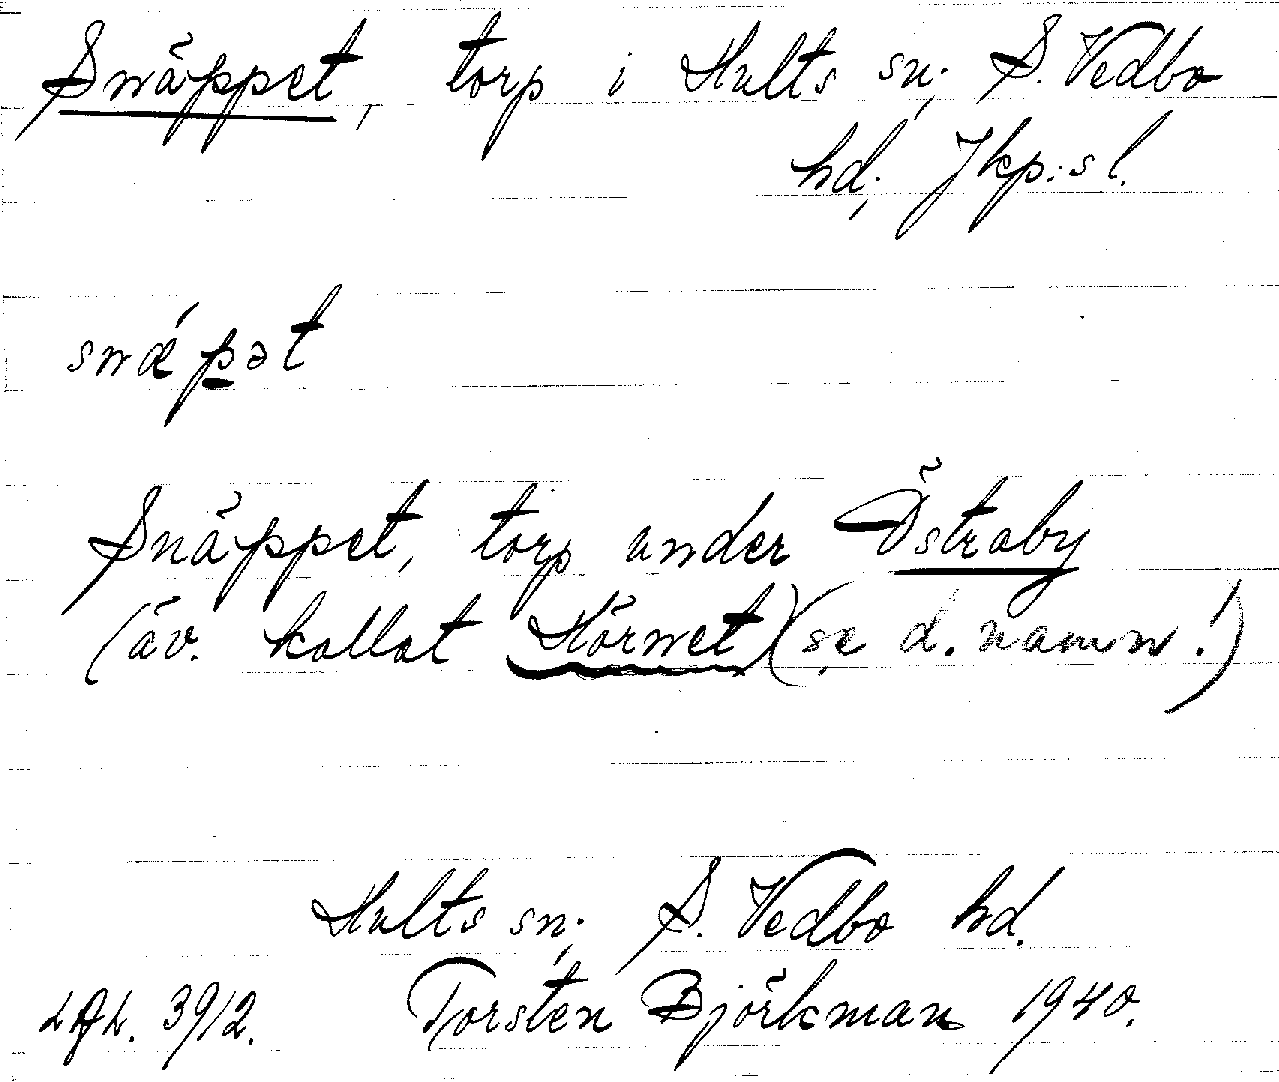 Snäppet, torp i Hults sn; S. Vedbo
hd; Jkp:s l.
snǽpət
Snäppet, torp under Östraby
(äv. kallat Hörnet) (se d. namn!)
Hults sn; S. Vedbo hd.
3912. Torsten Björkman 1940.